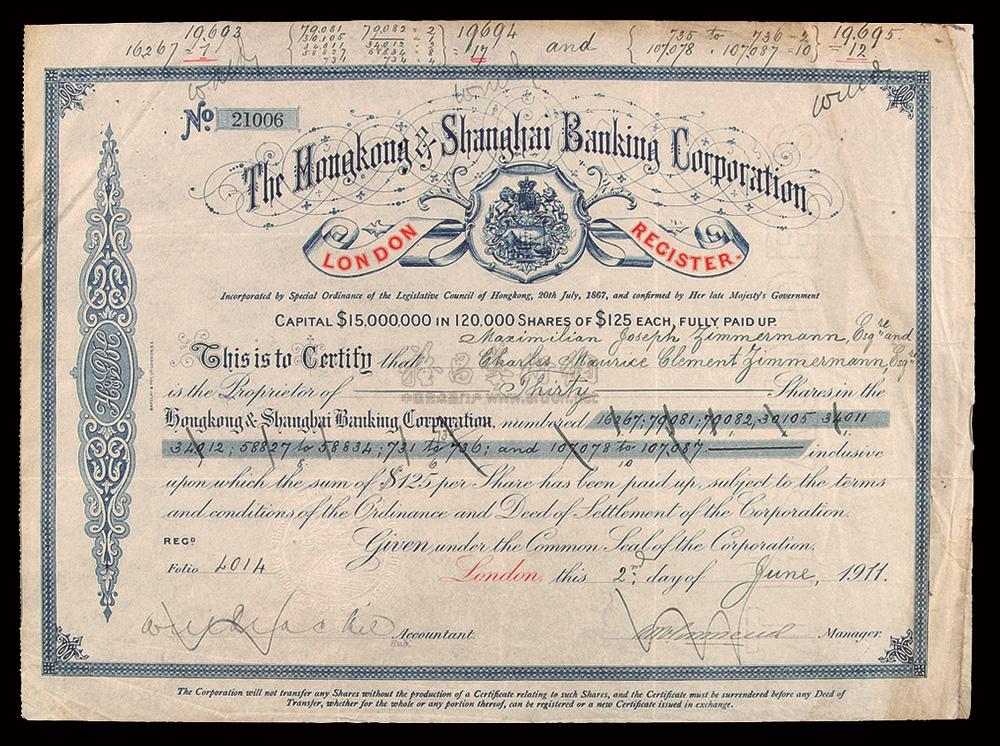 19,693 79,081 79,082 = 2 19694 735 to 736 = 2 19,695.
16267 = 1 30,105 34,012 = 2 = 17 and 107,078 . 107,087 = 10 = 12
34,011
734 734 = 4
No. 21006
The Hongkong & Shanghai Banking Corporation.
LONDON REGISTER.
Incorporated by Special Ordinance of the Legislative Council of Hongkong, 20th July, 1867, and confirmed by Her late Majesty's Government
CAPITAL $15,000,000 IN 120,000 SHARES OF $125 EACH, FULLY PAID UP.
Maximilian Joseph Zimmermann, Esqre and
This is to Certify that Charles Maurice Clement Zimmermann Esqre
is the Proprietor of Thirty Shares in the
Hongkong & Shanghai Banking Corporation, numbered 16267; 79081; 79082; 30105 34011
34012; 58827 to 58834; 731 to 736; and 107078 to 107,087 inclusive
upon which the sum of $125 per Share has been paid up, subject to the terms
and conditions of the Ordinance and Deed of Settlement of the Corporation.
REGD Given under the Common Seal of the Corporation.
Folio 4014 London, this 2nd day of June, 1911.
Accountant. Manager.
Sub.
The Corporation will not transfer any Shares without the production of a Certificate relating to such Shares, and the Certificate must be surrendered before any Deed of
Transfer, whether for the whole or any portion thereof, can be registered or a new Certificate issued in exchange.